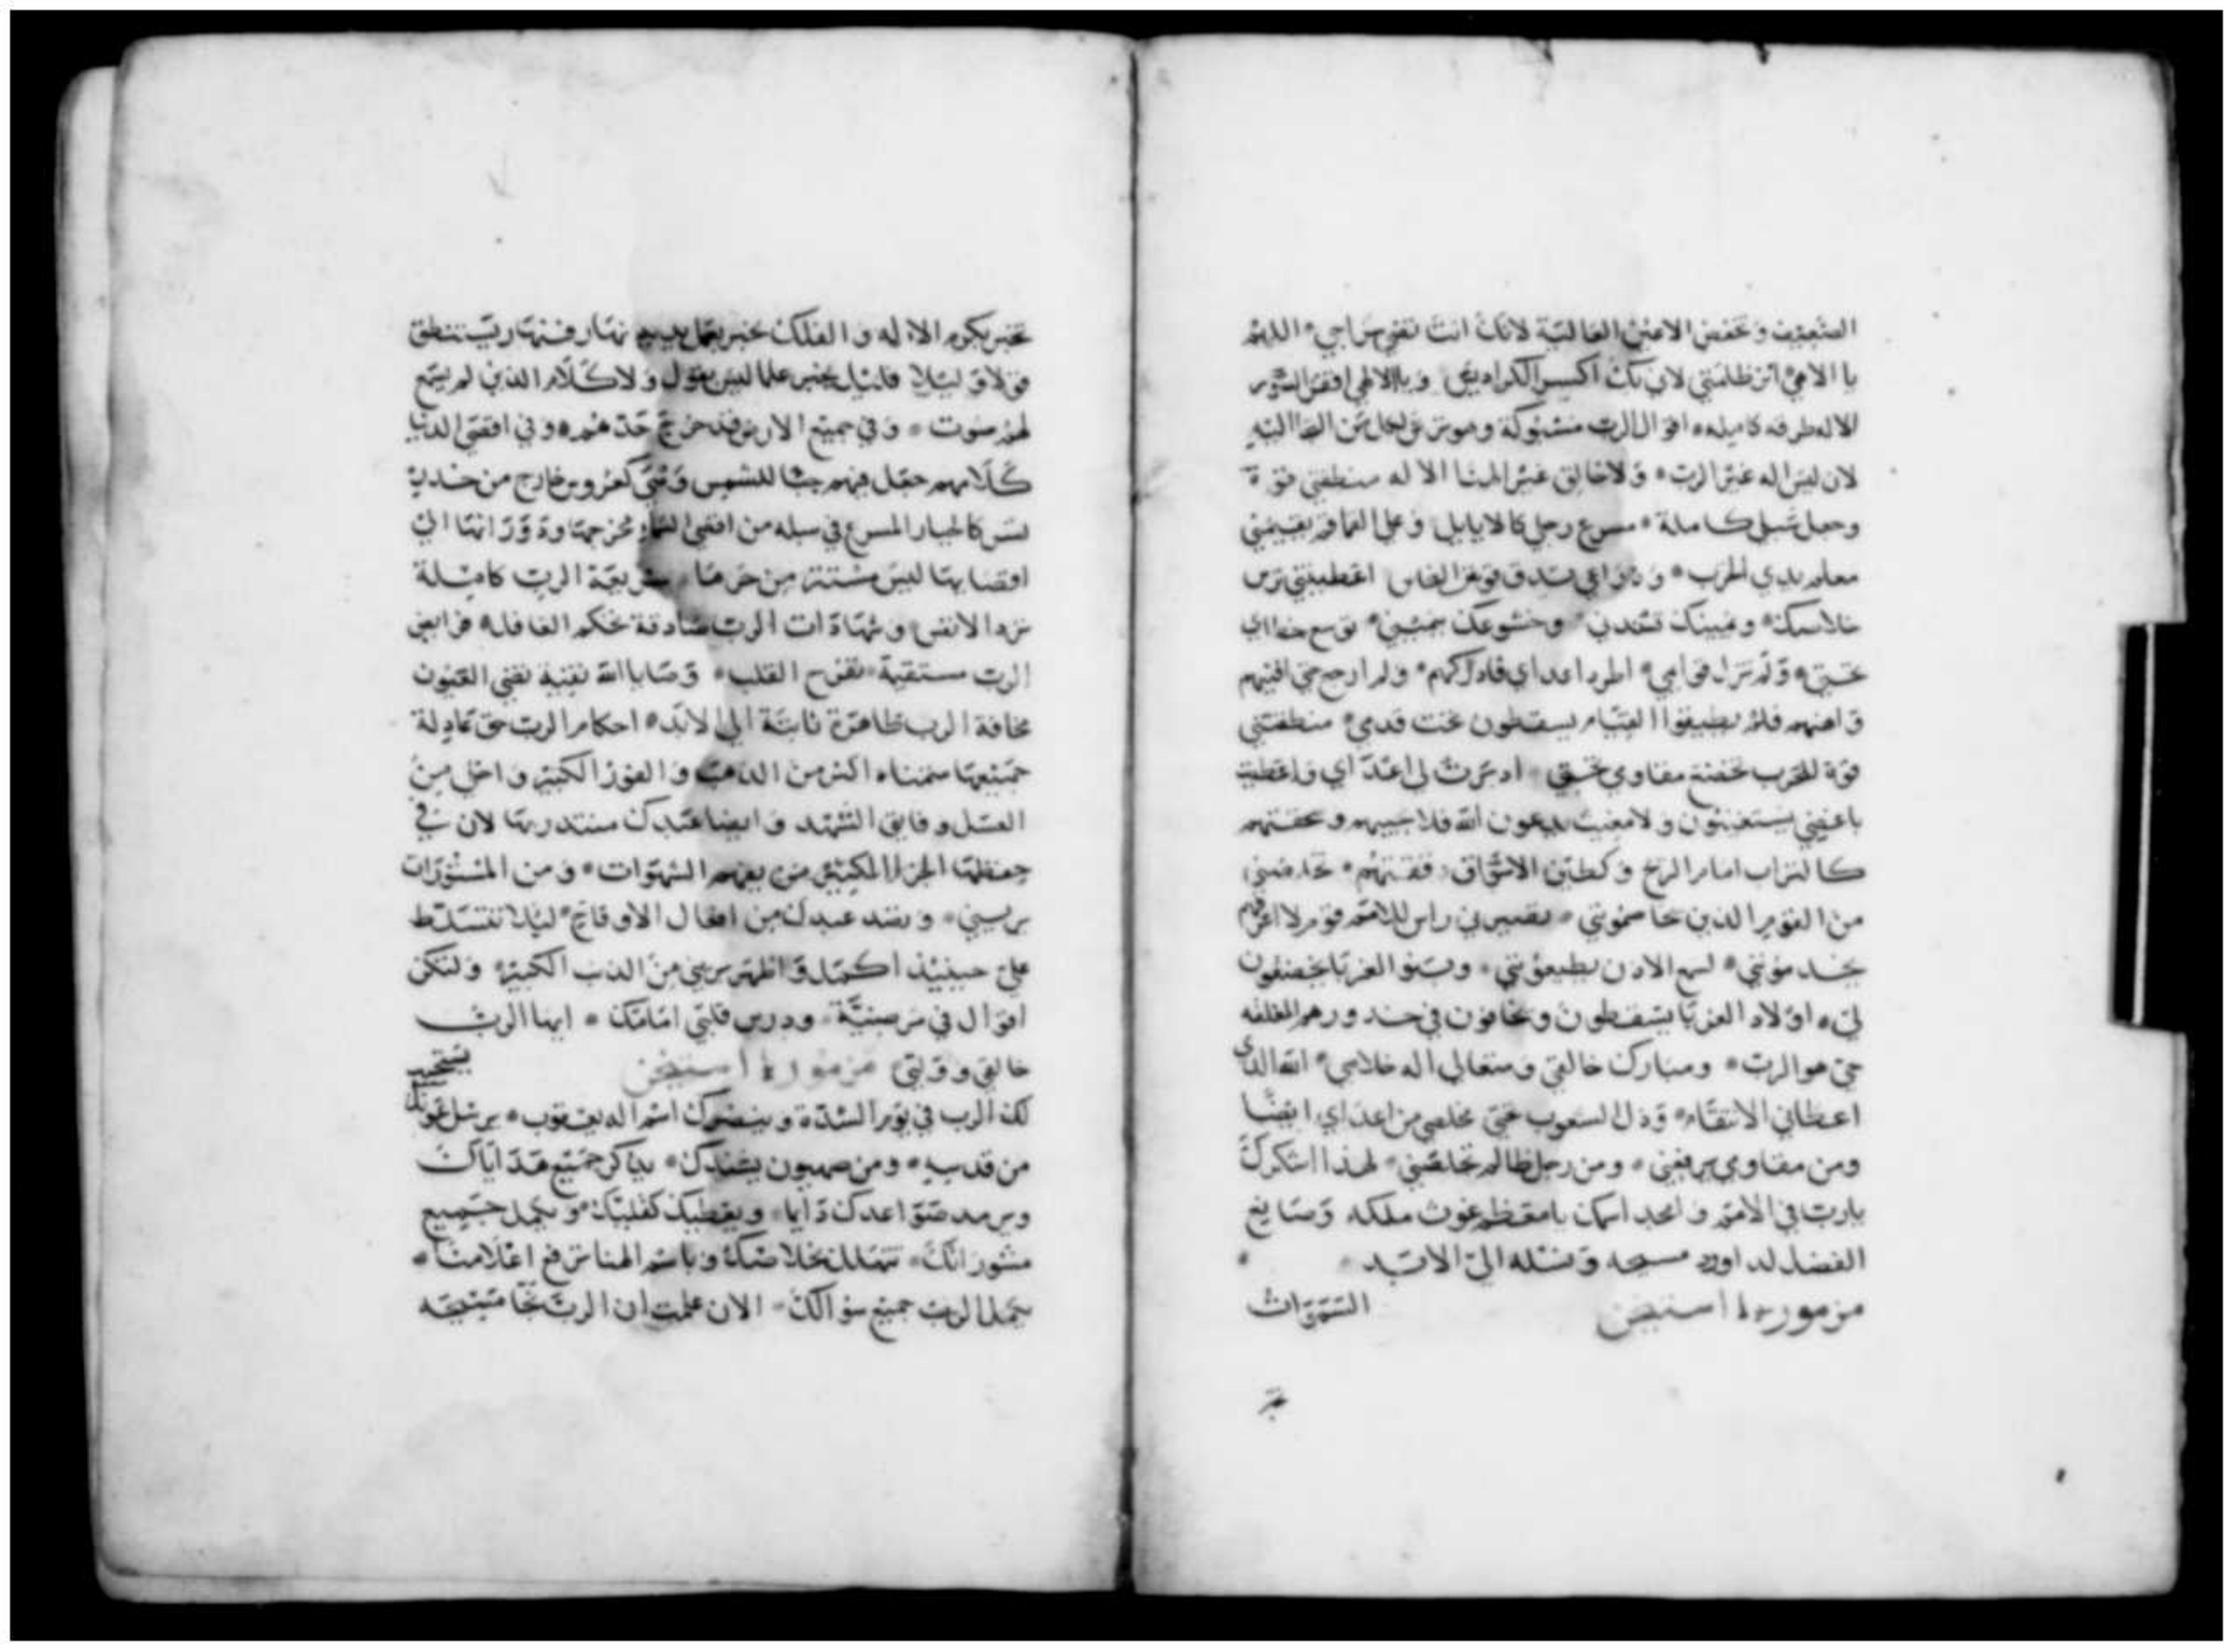 الضعيف وتخفض الاعين العالية لانك انت تضي سراجي الله
يا الاهي انر ظلمتي لان بك اكسر الكراديس وبالاهي اقفز السور
الاله طرقه كاميله اقوال الرب مسبوكة وهو ترس لكل من التجا اليه
لان ليس اله غير الرب ولا خالق غير الهنا الاله منطقني قوة
وجعل سبلي كاملة مسرع رجلي كالايايل وعلى القامة يقيمني
معلم يدي الحرب وذراعي تدق قوس النحاس اعطيتني ترس
خلاصك ويمينك تسندني وخشوعك يميني توسع خطاي
تحتي ولم تزل قوامي اطرد اعداي فادركهم ولم ارجع حتى افنيهم
واهنهم فلم يطيقوا القيام يسقطون تحت قدمي منطقتني
قوة للحرب تخضع مقاومي تحتي ادبرت لي اعداي واعطيت
باغضي يستغيثون ولا مغيث يدعون الله فلا يجيبهم وسحقتهم
كالتراب امام الريح وكطين الاسواق دققتهم تخلصني
من القوم الذين خاصموني تصيرني راس للامم قوم لا اعرفهم
يخدموني لسمع الاذن يطيعونني وبنو الغربا يخضعون
لي اولاد الغربا يسقطون ويخافون في خدورهم المغلقه
حي هو الرب ومبارك خالقي ومتعالي اله خلاصي الله الذي
اعطاني الانتقام وذل الشعوب تحتي مخلصي من اعداي ايضا
ومن مقاومي يرفعني ومن رجل ظالم تخلصني لهذا اشكرك
يارب في الامم وامجد اسمك يا معظم غوث ملكه وصانع
الفضل لداوود مسيحه ونسله الى الابد
مزمور ١٨ استيخن السموات
تخبر بكرم الاله والفلك تخبر بعمل يديه نهار فنهار يستنطق
قولا وليلا فليل يخبر علما ليس بقول ولا كلام الذي لم يسمع
لهم صوت وفي جميع الارض قد خرج حدهم وفي اقصى الدنيا
كلامهم جعل فيهم خبا للشمس وهي كعروس خارج من خدره
يسر كالجبار المسرع في سبله من اقصى السما مخرجها ودورانها الى
اقصايها ليس مستتر من حرها شريعة الرب كاميلة
ترد الانفس وشهادات الرب صادقة تحكم الغافله فرايض
الرب مستقيمة تفرح القلب وصايا الله نقية تضي العيون
مخافة الرب طاهرة ثابتة الى الابد احكام الرب حق عادلة
جميعها متمناه اكثر من الذهب والفوز الكبير واحلى من
العسل وفايق الشهد وايضا عبدك مستنذر بها لان في
حفظها الجزا الكثير من يفهم الشهوات ومن المستورات
بريني ونقذ عبدك من افعال الاوقاح ليلا تتسلط
علي حينيذ اكمل واطهر بريني من الذنب الكبير ولتكن
اقوال في مرضية ودرس قلبي امامك ايها الرب
خالقي ووليي مزمور ١٩ استيخن يستجيب
لك الرب في يوم الشدة وينصرك اسم اله يعقوب يرسل عونك
من قدسه ومن صهيون يعضدك يذكر جميع هداياك
ويرمد صواعدك دايما ويعطيك كقلبك ويكمل جميع
مشوراتك نتهلل بخلاصك وباسم الهنا نرفع اعلامنا
يكمل الرب جميع سوالك الان علمت ان الرب نجا مسيحه